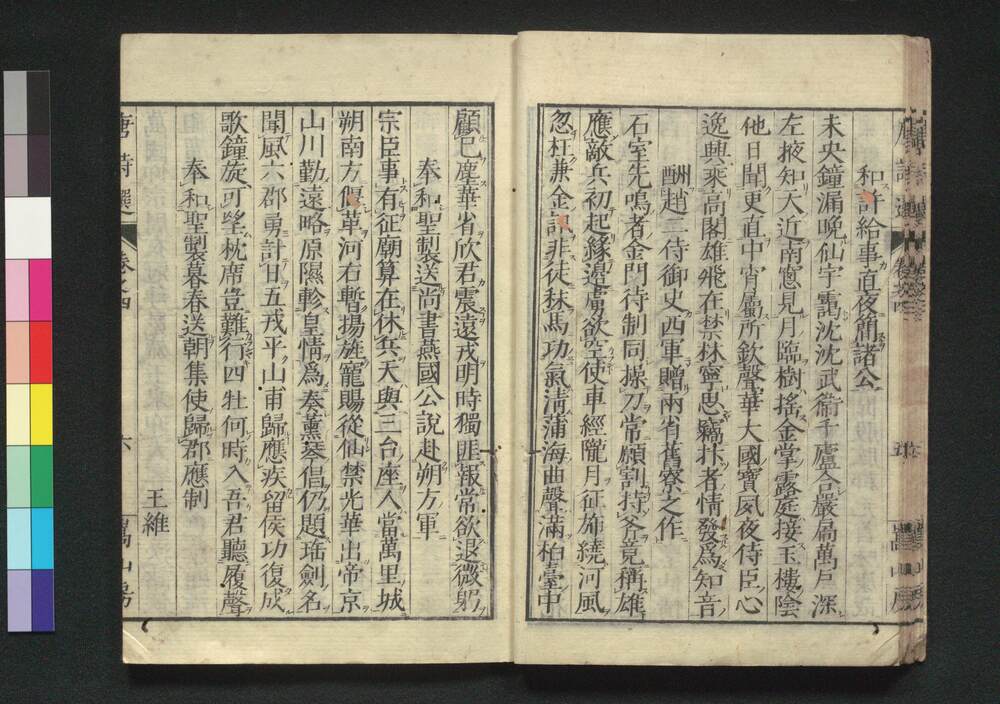 和許給事直夜簡諸公
未央鐘漏晚仙宇靄沈沈武衞千廬合嚴扃萬戶深
左掖知天近南窻見月臨樹搖金掌露庭接玉樓陰
他日聞更直中宵屬所欽聲華大國寶夙夜侍臣心
逸興乘高閣雄飛在禁林寧思竊抃者情發爲知音
酬趙二侍御史西軍贈兩省舊寮之作
石室先鳴者金門待制同操刀常願割持斧竟稱雄
應敵兵初起緣邊虜欲空使車經隴月征旆繞河風
忽枉兼金訊非徒秣馬功氣淸蒲海曲聲滿柏臺中
顧己塵華省欣君震遠戎明時獨匪報常欲退微躬
奉和聖製送尚書燕國公說赴朔方軍
宗臣事有征廟算在休兵天與三台座人當萬里城
朔南方偃革河右暫揚旌寵賜從仙禁光華出帝京
山川勤遠略原隰軫皇情爲奏薰琴倡仍題瑤劍名
聞風六郡勇計日五戎平山甫歸應疾留侯功復成
歌鐘旋可望枕席豈難行四牡何時入吾君聽履聲
奉和聖製暮春送朝集使歸郡應制
王維
唐詩選
卷之四
六
嵩山房